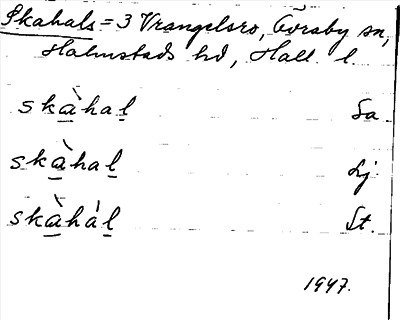 Skahals = 3 Vrangelsro, Övraby sn,
Halmstads hd, Hall. l.
skàhal Sa
skàhal Lj
skàhál St.
1947.